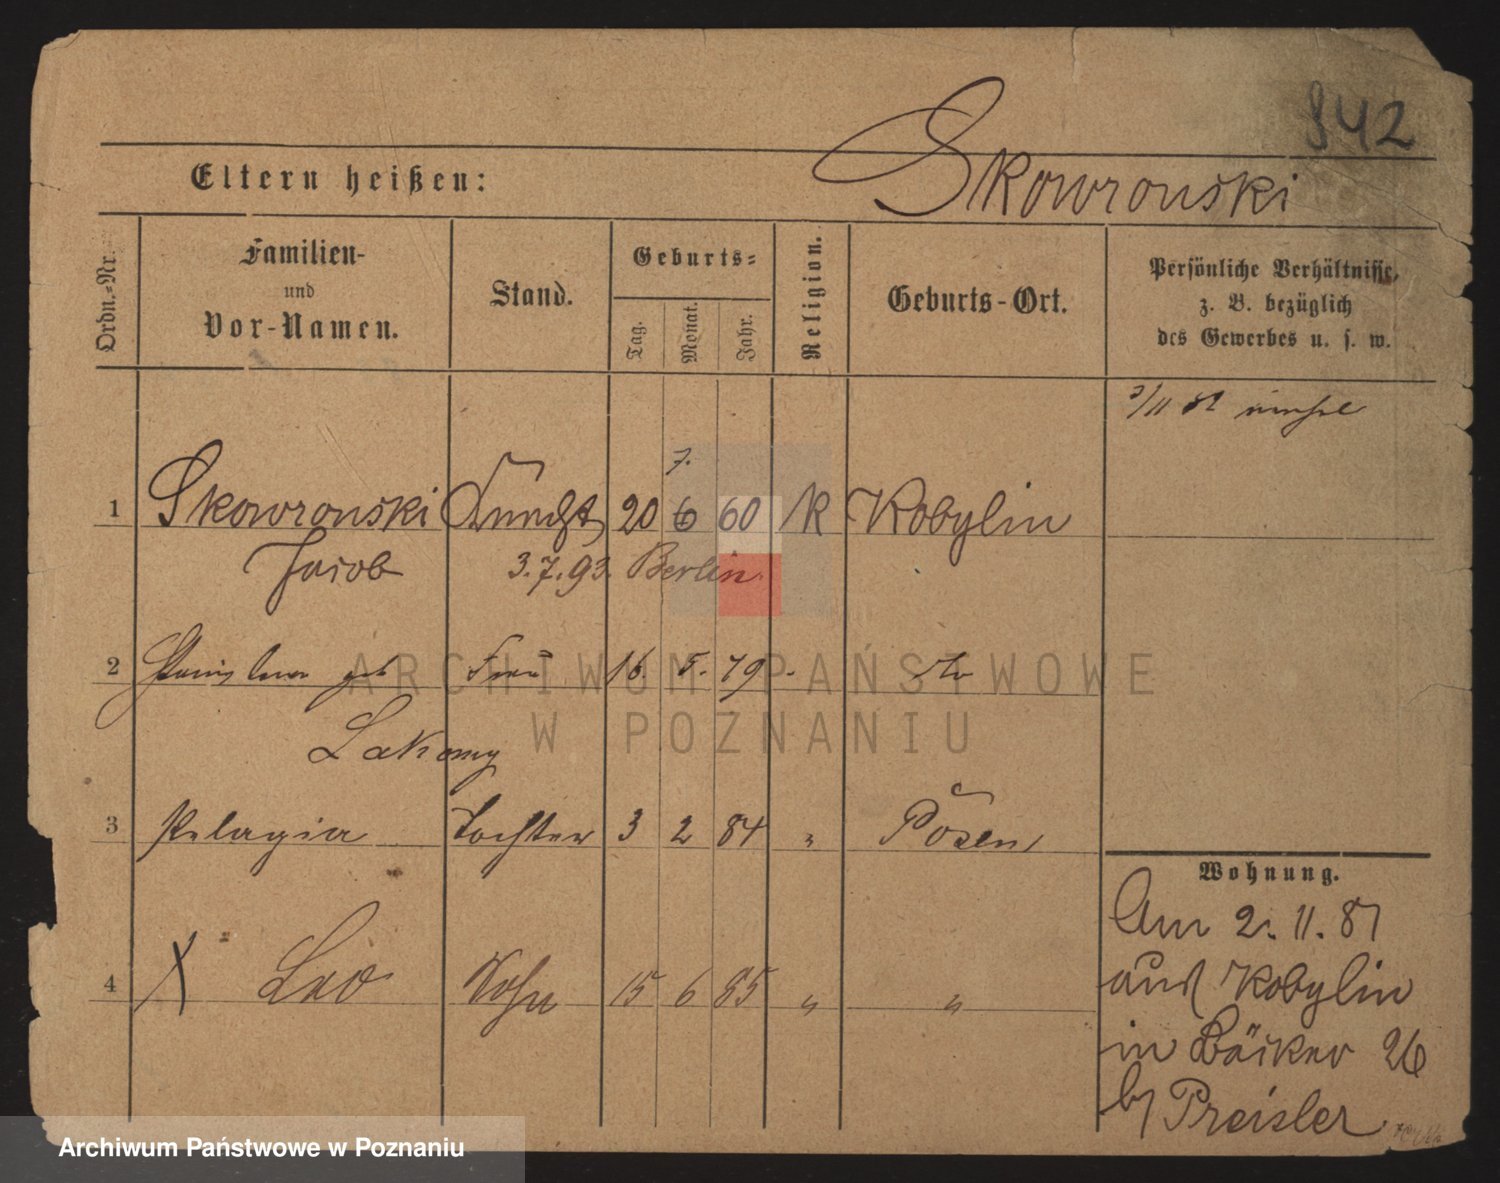 842
Skowronski
Eltern heißen:
Ordn.-Nr.
Familien-
und
Vor-Namen.
Stand.
Geburts-
Tag.
Monat.
Jahr.
Religion.
Geburts-Ort.
Persönliche Verhältnisse,
z. B. bezüglich
des Gewerbes u. s. w.
7.
1 Skowronski 20 6 60 K Kobylin
Jacob 3.7.93. Berlin.
2 Stanislawa geb Frau 16. 5. 79 do
Lakomy
3 Pelagia Tochter 3 2 84 " Posen
4 X Leo Sohn 15 6 85 " "
Wohnung.
Am 2. 11. 87
aus Kobylin
in Bäcker 26
b/ Preisler
ARCHIWUM PAŃSTWOWE
W POZNANIU
Archiwum Państwowe w Poznaniu